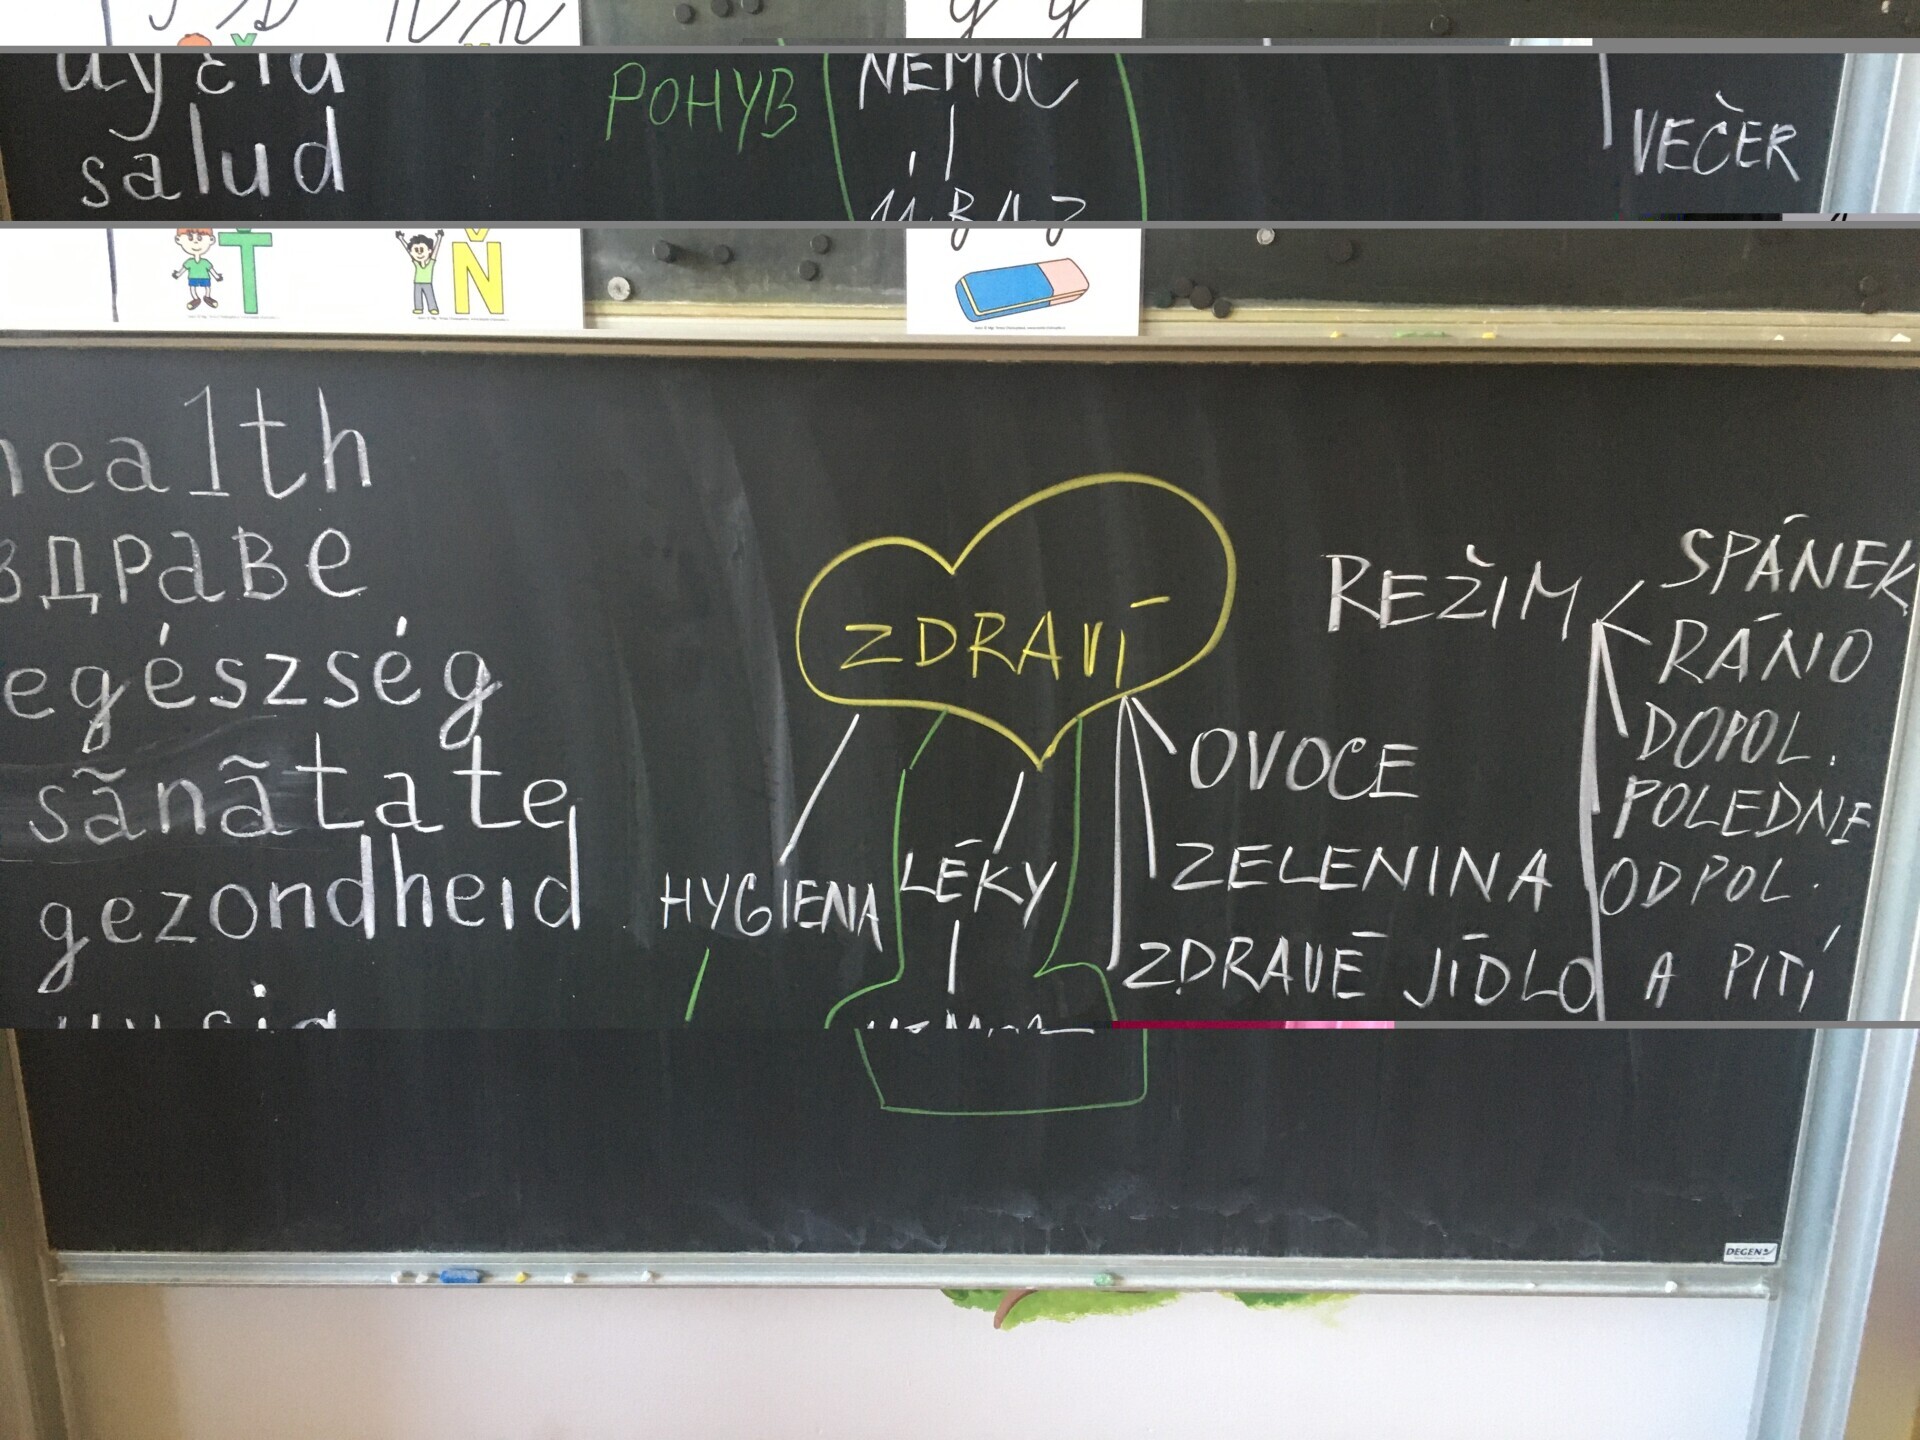 POHYB
NEMOC
VEČER
salud
Ť Ň
health
здраве
egészség
sãnãtate
gezondheid
ZDRAVÍ
HYGIENA
LÉKY
OVOCE
ZELENINA
ZDRAVÉ JÍDLO A PITÍ
REŽIM
SPÁNEK
RÁNO
DOPOL.
POLEDNE
ODPOL.
DEGEN